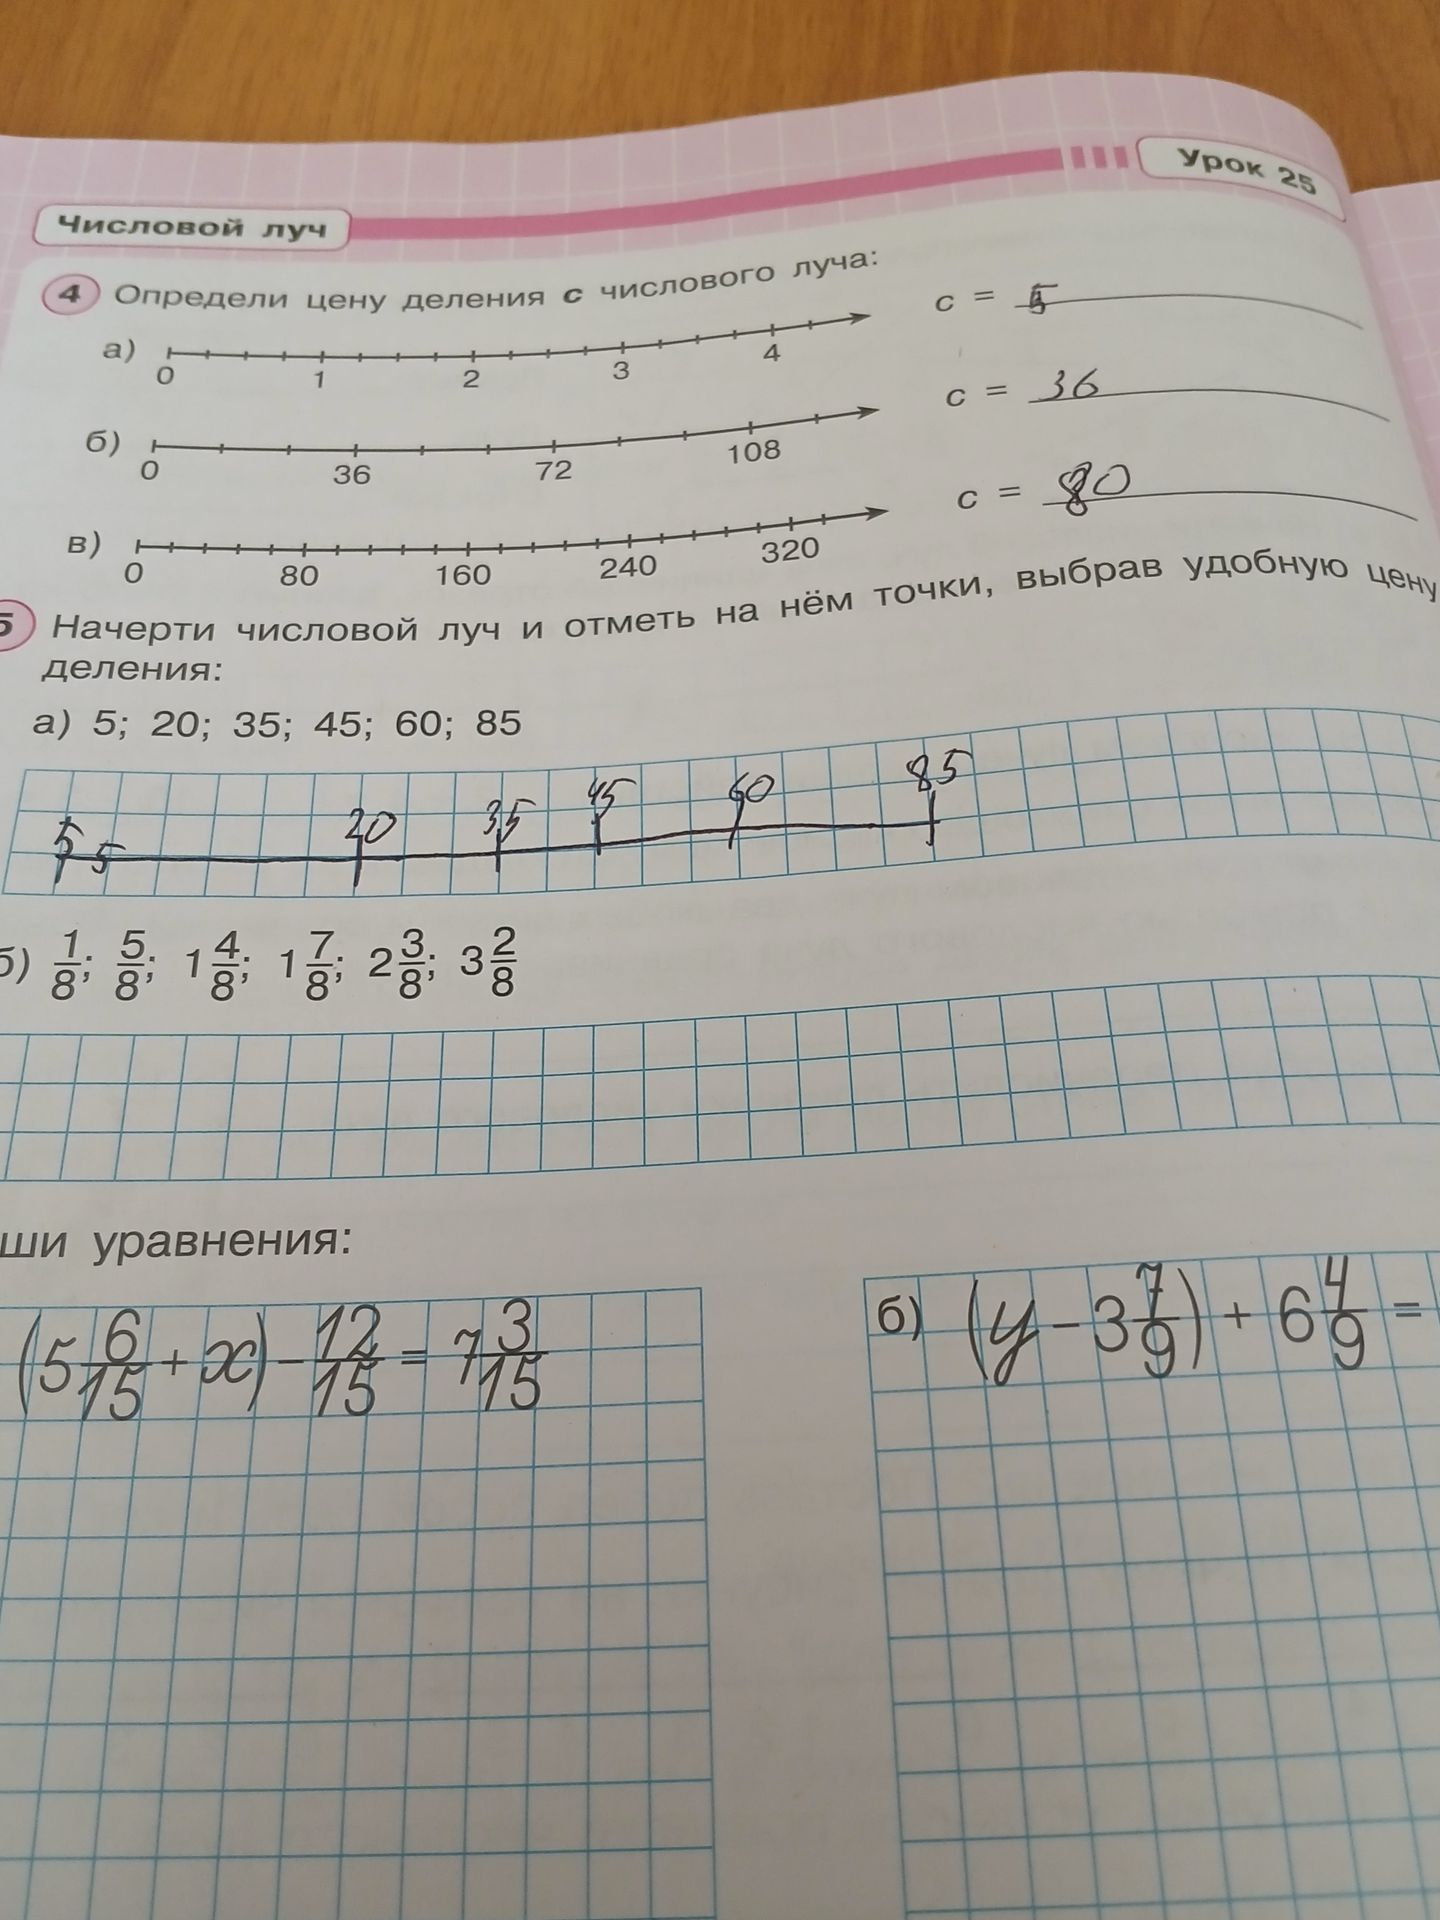 Урок 25
Числовой луч
4 Определи цену деления с числового луча:
а) 0 1 2 3 4 с =
б) 0 36 72 108 с = 36
в) 0 80 160 240 320 с = 80
5 Начерти числовой луч и отметь на нём точки, выбрав удобную цену
деления:
а) 5; 20; 35; 45; 60; 85
5 5 20 35 45 60 85
б) 1/8; 5/8; 1 4/8; 1 7/8; 2 3/8; 3 2/8
ши уравнения:
(5 6/15 + x) - 12/15 = 7 3/15
б) (y - 3 7/9) + 6 4/9 =